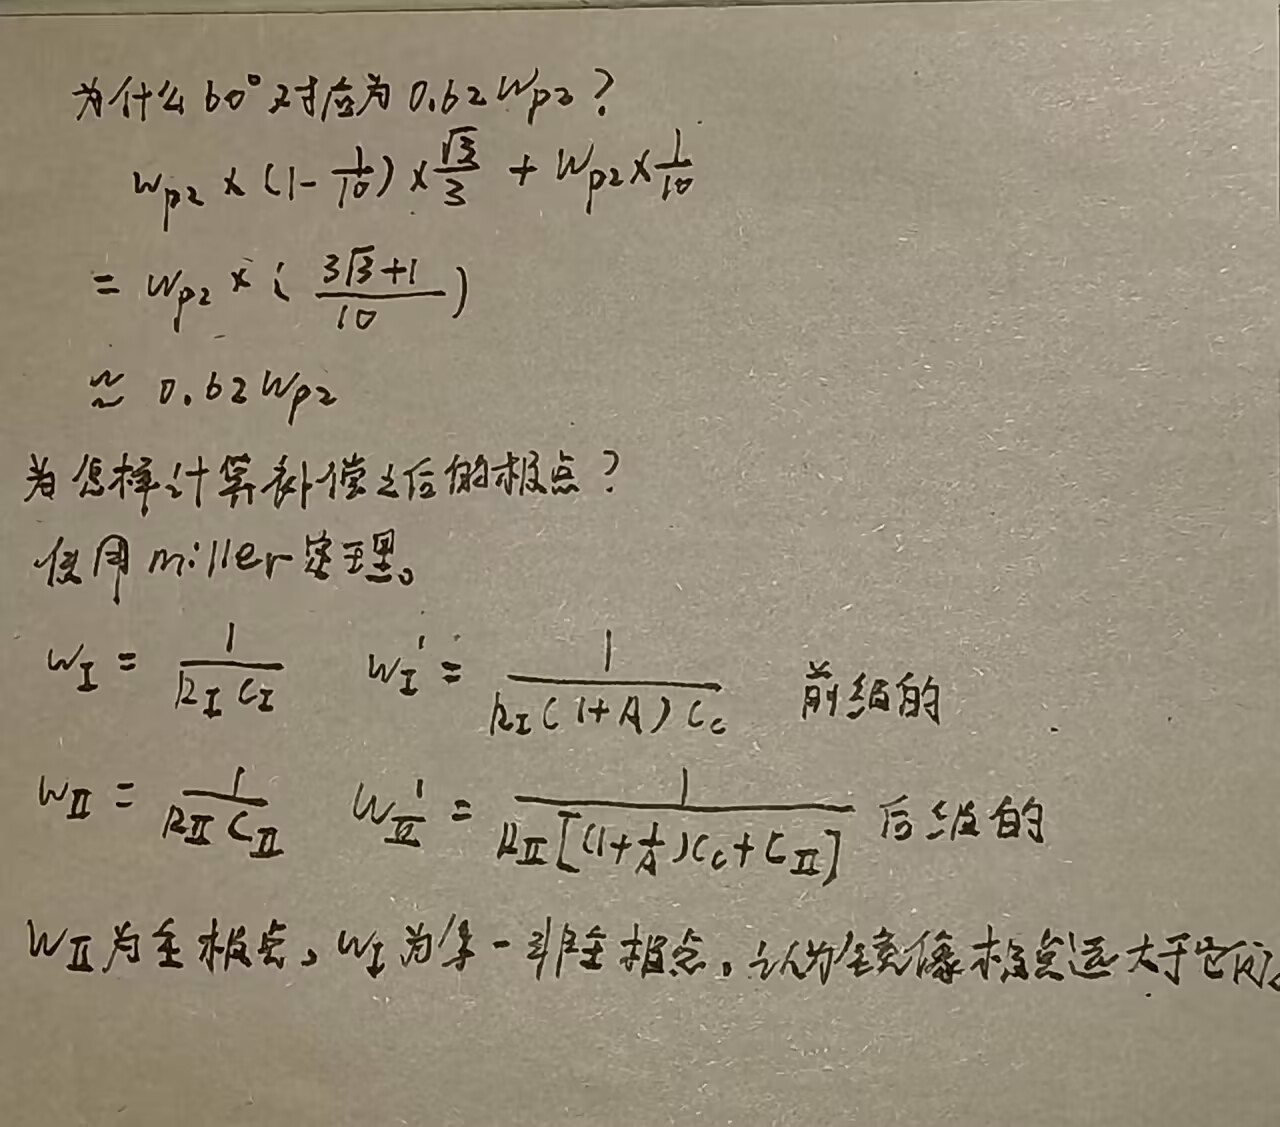 为什么60°对应为0.62Wp2?
Wp2 × (1-1/10) × √3/3 + Wp2 × 1/10
= Wp2 × (3√3+1/10)
≈ 0.62Wp2
为怎样计算补偿之后的极点?
使用miller定理。
WI = 1/RICI WI' = 1/RI(1+A)Cc 前级的
WII = 1/RIICII WII' = 1/RII[(1+1/A)Cc+CII] 后级的
WII为主极点,WI为第一非主极点,认为镜像极点远大于它们。